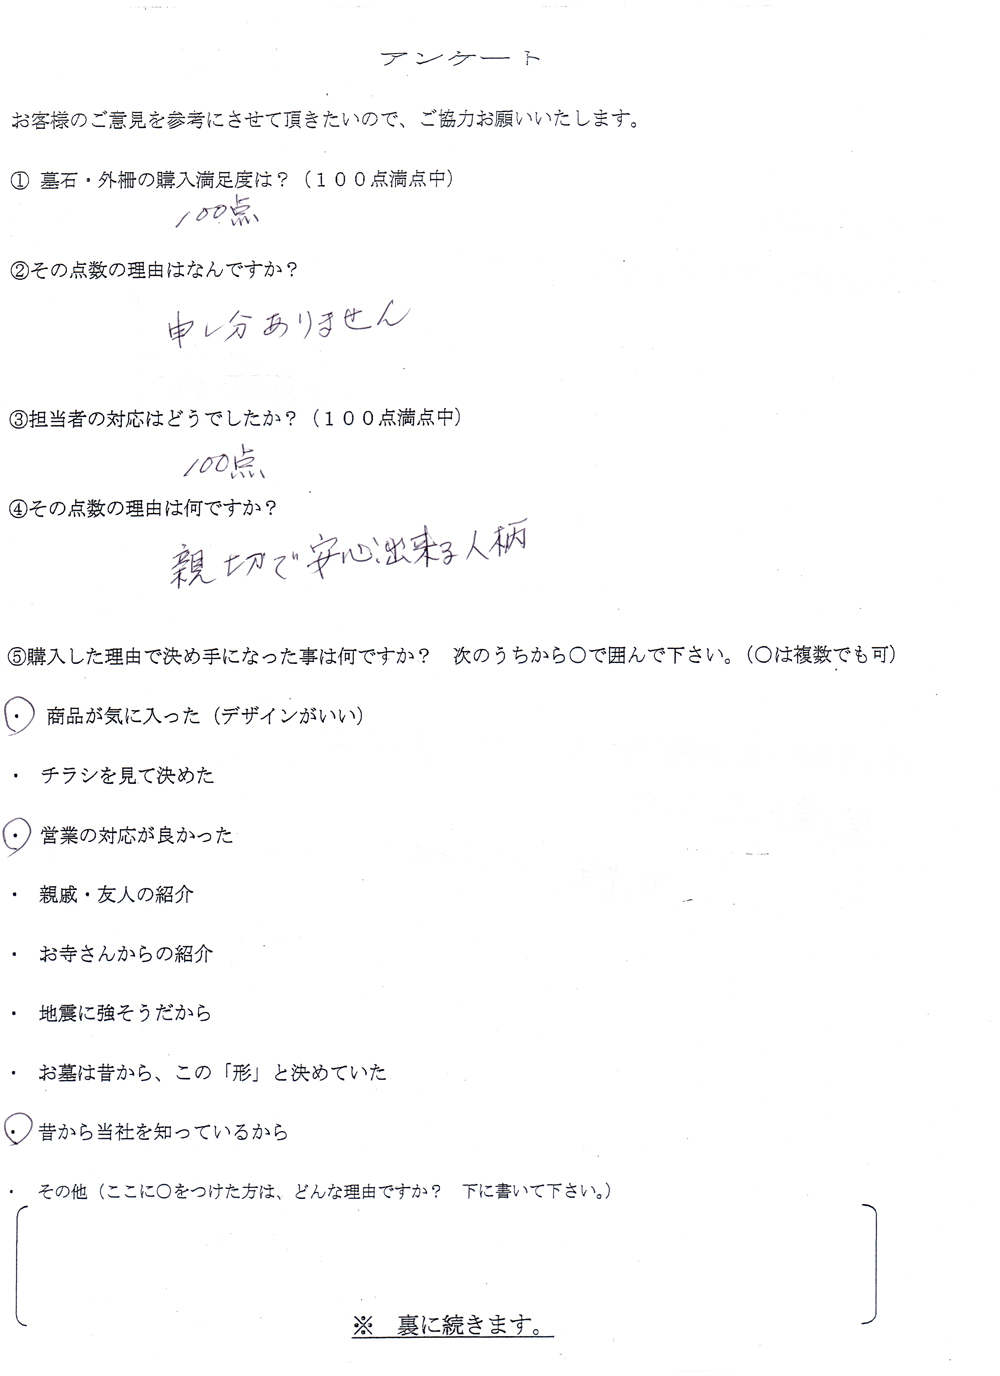 アンケート
お客様のご意見を参考にさせて頂きたいので、ご協力お願いいたします。
① 墓石・外柵の購入満足度は？（１００点満点中）
100点
②その点数の理由はなんですか？
申し分ありません
③担当者の対応はどうでしたか？（１００点満点中）
100点
④その点数の理由は何ですか？
親切で安心出来る人柄
⑤購入した理由で決め手になった事は何ですか？　次のうちから〇で囲んで下さい。（〇は複数でも可）
・ 商品が気に入った（デザインがいい）
・ チラシを見て決めた
・ 営業の対応が良かった
・ 親戚・友人の紹介
・ お寺さんからの紹介
・ 地震に強そうだから
・ お墓は昔から、この「形」と決めていた
・ 昔から当社を知っているから
・ その他（ここに〇をつけた方は、どんな理由ですか？　下に書いて下さい。）
※　裏に続きます。